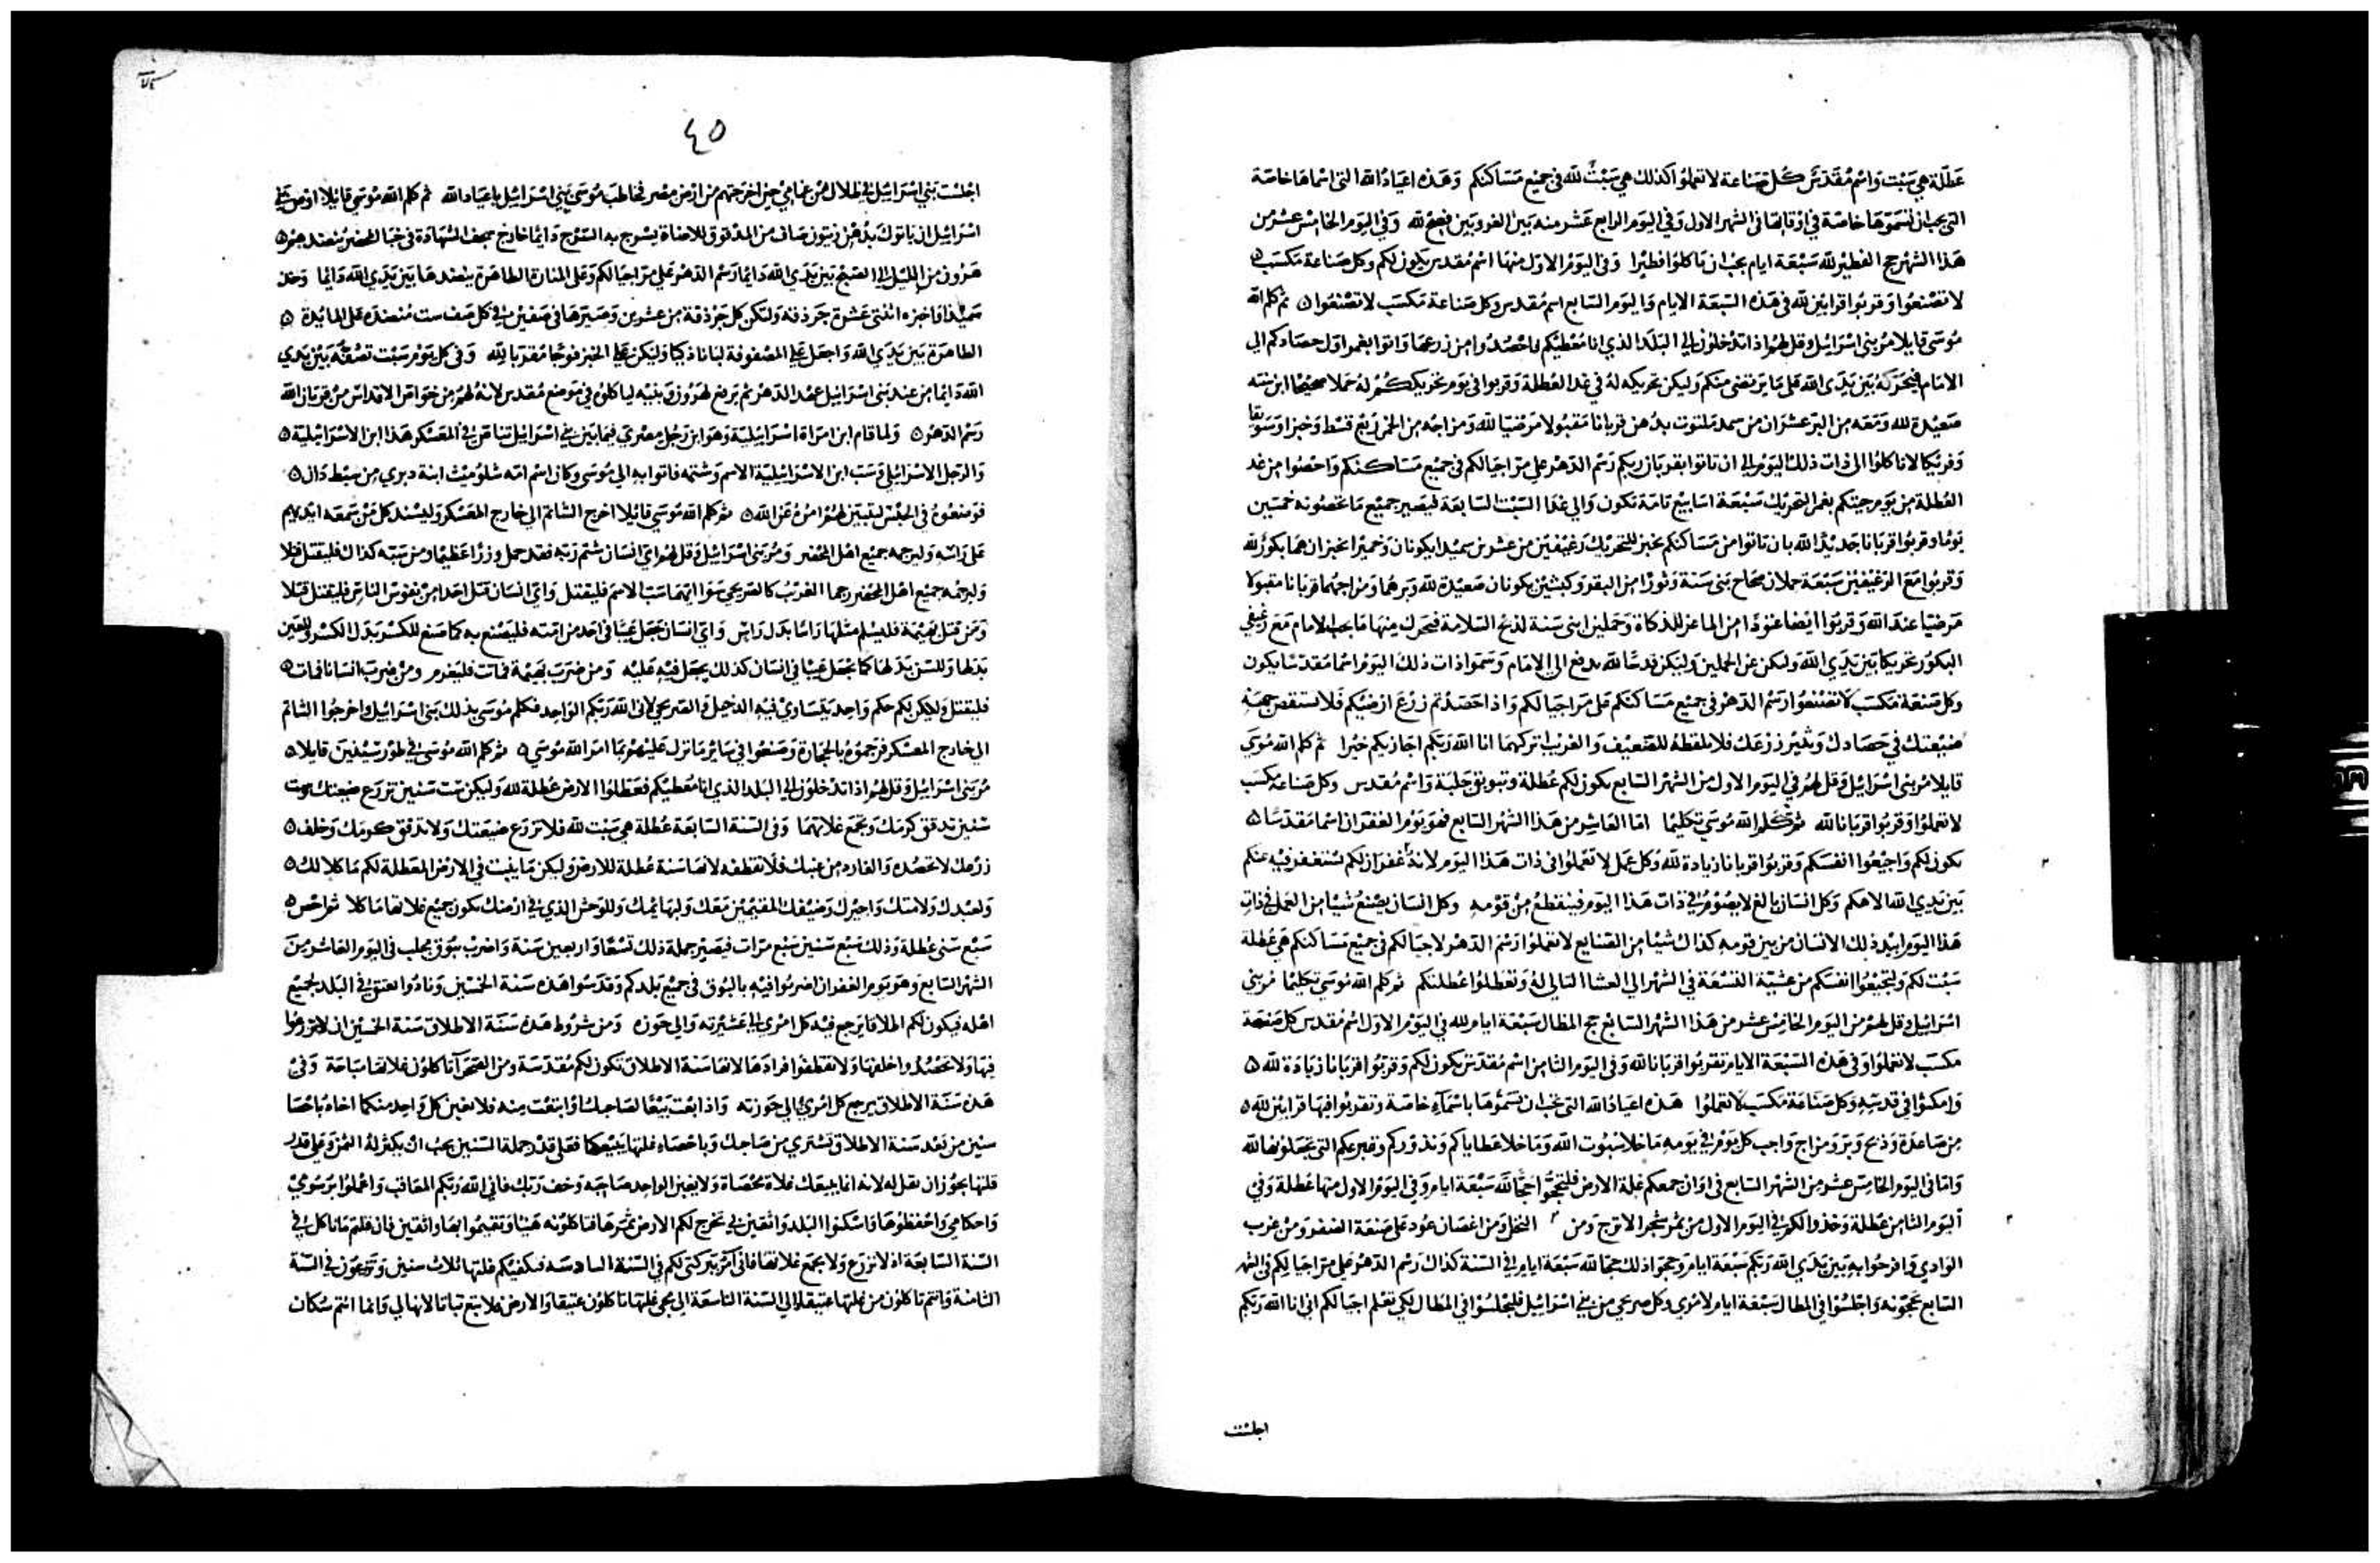 عطلة هي سبت واسم مقدس كل صناعة لا تعملوا كذلك هي سبت لله في جميع مساكنكم وهذه اعياد الله التي اسماها خاصة
التي يجب ان تسموها خاصة في اوقاتها في الشهر الاول وفي اليوم الرابع عشر منه بين الغروبين فصح لله وفي اليوم الخامس عشر من
هذا الشهر حج الفطير لله سبعة ايام يجب ان تاكلوا فطيرا وفي اليوم الاول منها اسم مقدس يكون لكم وكل صناعة مكسب
لا تصنعوا وقربوا قرابين لله في هذه السبعة الايام واليوم السابع اسم مقدس وكل صناعة مكسب لا تصنعوا ثم كلم الله
موسى قايلا مر بني اسرائيل وقل لهم اذا تدخلون الى البلد الذي انا معطيكم واحصدوا من زرعها واتوا بغمر اول حصادكم الى
الامام فيحركه بين يدي الله على ما يرتضى منكم وليكن تحريكه له في غد العطلة وقربوا في يوم تحريككم له حملا صحيحا ابن سنته
صعيدة لله ومعه من البر عشران من سميد ملتوت بدهن قربانا مقبولا مرضيا لله ومزاجه من الخمر ربع قسط وخبزا وسويقا
وفريكا لا تاكلوا الى ذات ذلك اليوم الى ان تاتوا بقربان ربكم رسم الدهر على مر اجيالكم في جميع مساكنكم واحصوا من غد
العطلة من يوم جيتكم بغمر التحريك سبعة اسابيع تامة تكون والي غد السبت السابعة فيصير جميع ما تحصونه خمسين
يوما وقربوا قربانا جديدا لله بان تاتوا من مساكنكم بخبز للتحريك رغيفين من عشرين سميدا يكونان وخميرا يخبزان هما بكور لله
وقربوا مع الرغيفين سبعة حملان صحاح بني سنة وثورا من البقر وكبشين يكونان صعيدة لله وبرهما ومزاجهما قربانا مقبولا
مرضيا عند الله وقربوا ايضا عتودا من الماعز للذكاة وحملين ابني سنة لذبح السلامة فيحرك منها ما يجب الامام مع رغيفي
البكور تحريكا بين يدي الله وليكن عن الحملين وليكن قدسا لله يدفع الى الامام وسموا ذات ذلك اليوم اسما مقدسا يكون
وكل صنعة مكسب لا تصنعوا رسم الدهر في جميع مساكنكم على مر اجيالكم واذا حصدتم زرع ارضيكم فلا تستقص جهة
ضيعتك في حصادك ونثير زرعك فلا تلقطه للضعيف والغريب اتركهما انا الله ربكم اجازيكم خيرا ثم كلم الله موسى
قايلا مر بني اسرائيل وقل لهم في اليوم الاول من الشهر السابع يكون لكم عطلة وتبويق جلبة واسم مقدس وكل صناعة مكسب
لا تعملوا وقربوا قربانا لله ثم كلم الله موسى تكليما اما العاشر من هذا الشهر السابع فهو يوم الغفران اسما مقدسا
يكون لكم واجيعوا انفسكم وقربوا قربانا زيادة لله وكل عمل لا تعملوا في ذات هذا اليوم لانه غفران لكم يستغفر فيه عنكم
بين يدي الله الاهكم وكل انسان بالغ لا يصوم في ذات هذا اليوم فينقطع من قومه وكل انسان يصنع شيا من العمل في ذات
هذا اليوم ابيد ذلك الانسان من بين قومه كذاك شيا من الصنايع لا تعملوا رسم الدهر لاجيالكم في جميع مساكنكم هي عطلة
سبت لكم ولتجيعوا انفسكم من عشية التسعة في الشهر الى العشا التالي له وتعطلوا عطلتكم ثم كلم الله موسى تكليما مر بني
اسرائيل وقل لهم من اليوم الخامس عشر من هذا الشهر السابع حج المظال سبعة ايام لله في اليوم الاول اسم مقدس كل صنعة
مكسب لا تعملوا وفي هذه السبعة الايام تقربوا قربانا لله وفي اليوم الثامن اسم مقدس يكون لكم وقربوا قربانا زيادة لله
وامكثوا في قدسه وكل صناعة مكسب لا تعملوا هذه اعياد الله التي يجب ان تسموها باسماء خاصة وتقربوا فيها قرابين لله
من صاعدة وذبح وبر ومزاج واجب كل يوم في يومه ما خلا سبوت الله وما خلا عطاياكم ونذوركم وتبرعكم التي تجعلونها لله
واما في اليوم الخامس عشر من الشهر السابع في اوان جمعكم غلة الارض فلتحجوا حجا لله سبعة ايام وفي اليوم الاول منها عطلة وفي
اليوم الثامن عطلة وخذوا لكم في اليوم الاول من ثمر شجر الاترج ومن النخل ومن اغصان عود على صنعة الضفر ومن غرب
الوادي وافرحوا به بين يدي الله ربكم سبعة ايام وحجوا ذلك حجا لله سبعة ايام في السنة كذاك رسم الدهر على مر اجيالكم في الشهر
السابع تحجونه واجلسوا في المظال سبعة ايام لامري وكل صريحي من بني اسرائيل فليجلسوا في المظال لكي تعلم اجيالكم اني انا الله ربكم
اجلست
٤٥
اجلست بني اسرائيل في ظلال من غمامي حين اخرجتهم من ارض مصر فخاطب موسى بني اسرائيل باعياد الله ثم كلم الله موسى قايلا اوص بني
اسرائيل ان ياتوك بدهن زيتون صاف من المدقوق للاضاة يسرج به السرج دايما خارج سجف الشهادة في خبا المحضر ينضدهم
هرون من الليل الى الصبح بين يدي الله دايما رسم الدهر على مر اجيالكم وعلى المنارة الطاهرة ينضدها بين يدي الله دايما وخذ
سميدا فاخبزه اثنتي عشرة جردقة ولتكن كل جردقة من عشرين وصيرها في صفين في كل صف ست منضدة على المايدة
الطاهرة بين يدي الله واجعل على المصفوفة لبانا ذكيا وليكن على الخبز فوحا مقربا لله وفي كل يوم سبت تصفه بين يدي
الله دايما من عند بني اسرائيل عهد الدهر ثم يرفع لهرون وبنيه لياكلوه في موضع مقدس لانه لهم من خواص الاقداس من قربان الله
رسم الدهر ولما قام ابن امراة اسرائيلية وهو ابن رجل مصري فيما بين بني اسرائيل تناصى في المعسكر هذا ابن الاسرائيلية
والرجل الاسرائيلي وسب ابن الاسرائيلية الاسم وشتمه فاتوا به الى موسى وكان اسم امه شلوميث ابنة دبري من سبط دان
فوضعوه في الحبس ليتبين لهم امره عن الله ثم كلم الله موسى قايلا اخرج الشاتم الى خارج المعسكر وليسند كل من سمعه ايديهم
على راسه وليرجمه جميع اهل المحضر ومر بني اسرائيل وقل لهم اي انسان شتم ربه فقد حمل وزرا عظيما ومن سبه كذاك فليقتل قتلا
وليرجمه جميع اهل المحضر رجما الغريب كالصريحي سوا ايهما سب الاسم فليقتل واي انسان قتل احدا من نفوس الناس فليقتل قتلا
ومن قتل بهيمة فليسلم مثلها راسا بدل راس واي انسان جعل عيبا في احد من امته فليصنع به كما صنع للكسر بدل الكسر وللعين
بدلها وللسن بدلها كما يجعل عيبا في انسان كذلك يجعل فيه عليه ومن ضرب بهيمة فماتت فليغرم ومن ضرب انسانا فمات
فليقتل وليكن لكم حكم واحد يتساوى فيه الدخيل والصريحي لاني الله ربكم الواحد فكلم موسى بذلك بني اسرائيل واخرجوا الشاتم
الى خارج المعسكر فرجموه بالحجارة وصنعوا في ساير ما نزل عليهم بما امر الله موسى ثم كلم الله موسى في طور سينين قايلا
مر بني اسرائيل وقل لهم اذا تدخلون الى البلد الذي انا معطيكم فعطلوا الارض عطلة لله وليكن ست سنين تزرع ضيعتك وست
سنين تدقق كرمك وتجمع غلاتهما وفي السنة السابعة عطلة هي سبت لله فلا تزرع ضيعتك ولا تدقق كرمك وخلف
زرعك لا تحصده والفارد من عنبك فلا تقطفه لانها سنة عطلة للارض وليكن ما ينبت في الارض المعطلة لكم ماكلا لك
ولعبدك ولامتك واجيرك وضيفك المقيمين معك ولبهايمك وللوحش الذي في ارضك يكون جميع غلاتها ماكلا ثم احص
سبع سني عطلة وذلك سبع سنين سبع مرات فيصير جملة ذلك تسعا واربعين سنة واضرب ببوق مجلب في اليوم العاشر من
الشهر السابع وهو يوم الغفران اضربوا فيه بالبوق في جميع بلدكم وقدسوا هذه سنة الخمسين ونادوا بعتق في البلد لجميع
اهله فيكون لكم اطلاقا يرجع فيه كل امري الى عشيرته والى حوزه ومن شروط هذه سنة الاطلاق سنة الخمسين ان لا تزرعوا
فيها ولا تحصدوا خلفها ولا تقطفوا افرادها لانها سنة الاطلاق تكون لكم مقدسة ومن الصحرا تاكلون غلاتها مباحة وفي
هذه سنة الاطلاق يرجع كل امري الى حوزته واذا بعت بيعا لصاحبك او ابتعت منه فلا يغبن كل واحد منكما اخاه باحصا
سنين من بعد سنة الاطلاق تشتري من صاحبك وباحصاء غلتها يبيعكها فعلى قدر جملة السنين يجب ان يكثر له الثمن وعلى قدر
قلتها يجوز ان يقل له لانه انما يبيعك غلاة محصاة ولا يغبن الواحد صاحبه وخف ربك فاني الله ربكم المعاقب واعملوا برسومي
واحكامي واحفظوها واسكنوا البلد واثقين لي تخرج لكم الارض ثمرها فتاكلونه هنيا وتقيموا بها واثقين فان قلتم ماناكل في
السنة السابعة اذ لا نزرع ولا نجمع غلاتها فاني آمر ببركتي لكم في السنة السادسة فيكفيكم غلتها ثلاث سنين وتزرعون في السنة
الثامنة وانتم تاكلون من غلتها عتيقا الى السنة التاسعة الى مجي غلتها تاكلون عتيقا والارض فلا تبع تباتا لانها لي وانما انتم سكان